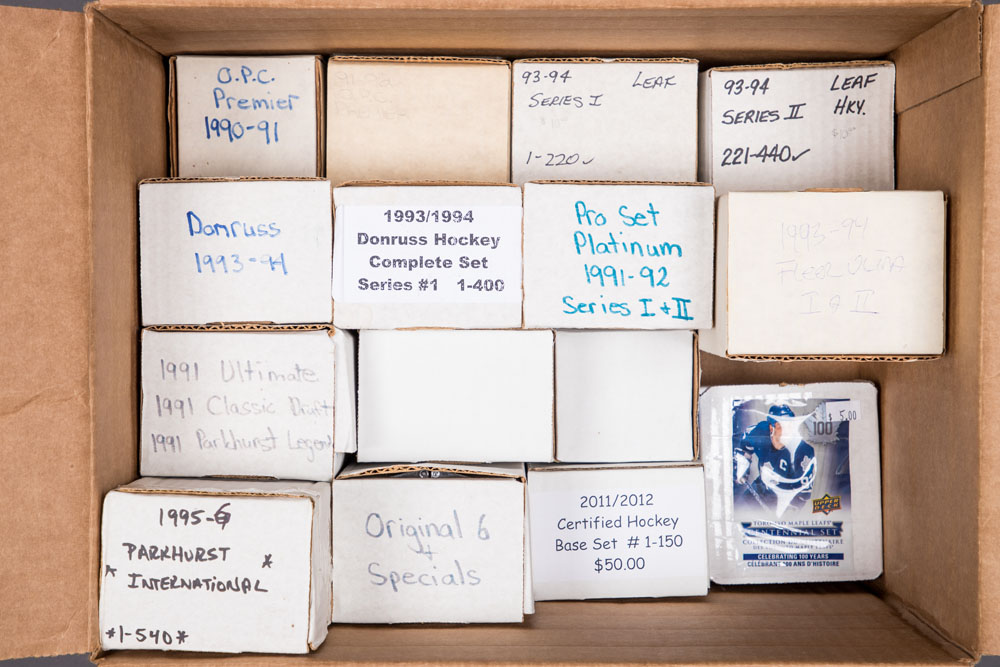 O.P.C.
Premier
1990-91
93-94 LEAF
SERIES I
1-220
93-94 LEAF
SERIES II HKY.
221-440
Donruss
1993-94
1993/1994
Donruss Hockey
Complete Set
Series #1 1-400
Pro Set
Platinum
1991-92
Series I + II
1993-94
FLEER ULTRA
I & II
1991 Ultimate
1991 Classic Draft
1991 Parkhurst Legend
$ 5.00
100
UPPER DECK
TORONTO MAPLE LEAFS
CENTENNIAL SET
CELEBRATING 100 YEARS
CÉLÉBRANT 100 ANS D'HISTOIRE
1995-6
* PARKHURST *
INTERNATIONAL
*1-540*
Original 6
+
Specials
2011/2012
Certified Hockey
Base Set # 1-150
$50.00